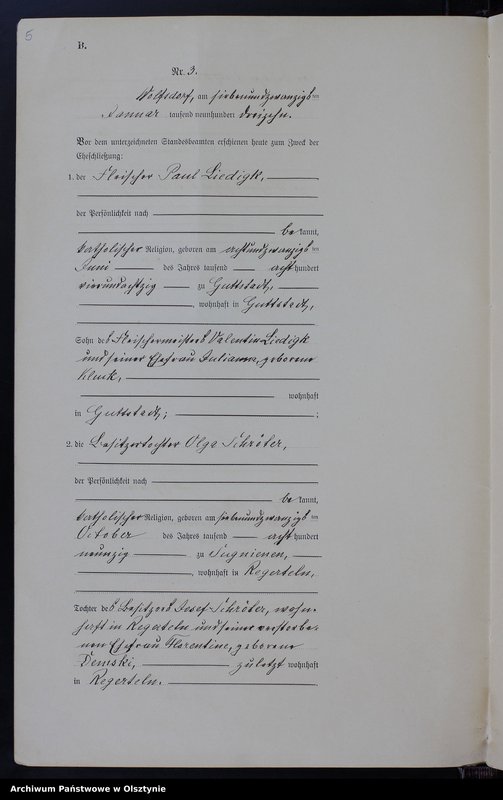 5
B.
Nr. 3.
Wolfsdorf, am siebenundzwanzigsten
Januar tausend neunhundert dreizehn.
Vor dem unterzeichneten Standesbeamten erschienen heute zum Zweck der
Eheschließung:
1. der Fleischer Paul Liedigk,
der Persönlichkeit nach
bekannt,
katholischer Religion, geboren am achtundzwanzigsten
Juni des Jahres tausend acht hundert
vierundachtzig zu Guttstadt,
, wohnhaft in Guttstadt,
Sohn des Fleischermeisters Valentin Liedigk
und seiner Ehefrau Julianna, geborene
Kluck,
wohnhaft
in Guttstadt; ;
2. die Besitzertochter Olga Schröter,
der Persönlichkeit nach
bekannt,
katholischer Religion, geboren am siebenundzwanzigsten
October des Jahres tausend acht hundert
neunzig zu Sugnienen,
, wohnhaft in Regerteln,
Tochter des Besitzers Josef Schröter, wohn-
haft in Regerteln und seiner verstorbe-
nen Ehefrau Florentine, geborene
Demski, zuletzt wohnhaft
in Regerteln.
Archiwum Państwowe w Olsztynie